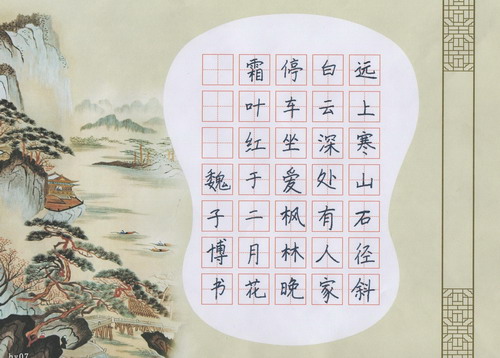 远上寒山石径斜
白云深处有人家
停车坐爱枫林晚
霜叶红于二月花
魏子博书
hy07